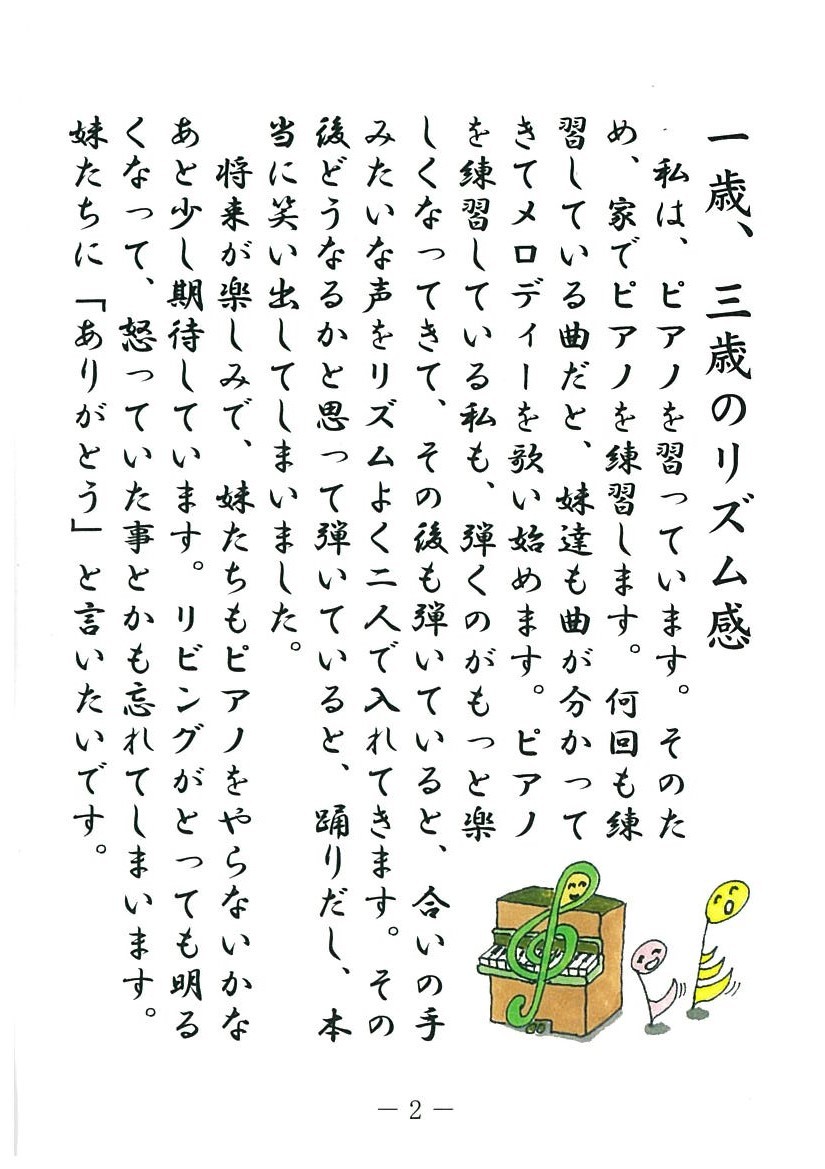 一歳、三歳のリズム感
私は、ピアノを習っています。そのた
め、家でピアノを練習します。何回も練
習している曲だと、妹達も曲が分かって
きてメロディーを歌い始めます。ピアノ
を練習している私も、弾くのがもっと楽
しくなってきて、その後も弾いていると、合いの手
みたいな声をリズムよく二人で入れてきます。その
後どうなるかと思って弾いていると、踊りだし、本
当に笑い出してしまいました。
将来が楽しみで、妹たちもピアノをやらないかな
あと少し期待しています。リビングがとっても明る
くなって、怒っていた事とかも忘れてしまいます。
妹たちに「ありがとう」と言いたいです。
― 2 ―